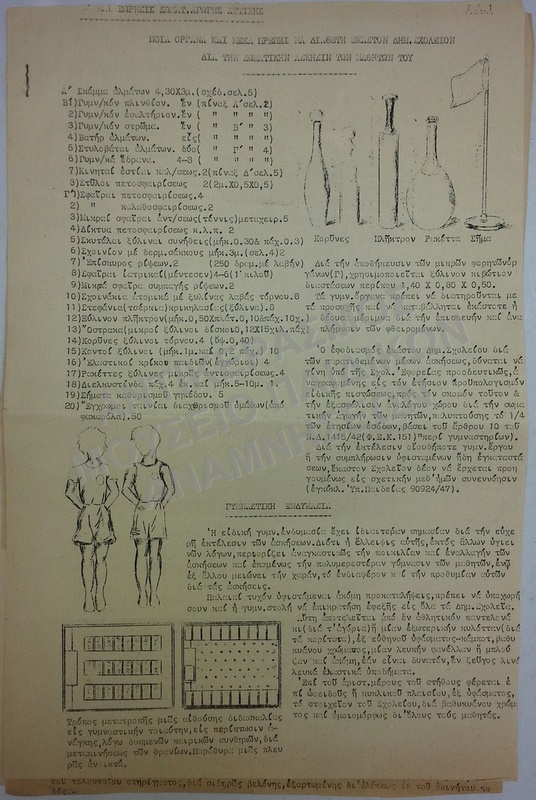 ΠΟΙΑ ΟΡΓΑΝΑ ΚΑΙ ΜΕΣΑ ΠΡΕΠΕΙ ΝΑ ΔΙΑΘΕΤΗ ΕΚΑΣΤΟΝ ΔΗΜ.ΣΧΟΛΕΙΟΝ
ΔΙΑ ΤΗΝ ΣΩΜΑΤΙΚΗΝ ΑΣΚΗΣΙΝ ΤΩΝ ΜΑΘΗΤΩΝ ΤΟΥ
Α' Σκάμμα ἁλμάτων 4,30Χ3μ.(σχέδ.σελ.5)
Β1)Γυμν/κόν πλινθίον. Ἕν (πίναξ Α'σελ.2)
2)Γυμν/κόν ἐφαλτήριον.Ἕν ( " " " " )
3)Γυμν/κόν στρῶμα. Ἕν ( " Β' " 3)
4)Βατήρ ἁλμάτων. εἷς( " " " ")
5)Στυλοβάται ἁλμάτων. δύο( " Γ' " 4)
6)Γυμν/κά ἕδρανα. 4-8 ( " " " ")
7)Κινηταί ἑστίαι καλ/σεως.2(πίναξ Δ'σελ.5)
8)Στῦλοι πετοσφαιρίσεως 2(2μ.Χ0,5Χ0,5)
Γ1)Σφαῖραι πετοσφαιρίσεως.4
2) " καλαθοσφαιρίσεως.2
3)Μικραί σφαῖραι ἀντ/σεως(τέννις)μεταχειρ.5
4)Δίκτυα πετοσφαιρίσεως κ.λ.π. 2
5)Σκυτάλαι ξύλιναι συνήθεις(μήκ.0.30& πάχ.0.3)
6)Σχοινίον μέ δερμ.σάκκους μήκ.3μ.(σελ.4)2
7)Ἐπίσαυρος ῥίψεων.2 (250 δραμ.μέ λαβήν)
8)Σφαῖραι ἰατρικαί(μέντεσεν)4-6(1 κιλοῦ)
9)Μικρά σφαῖρα συμπαγής ρίψεων.2
10)Σχοινάκια ἀτομικά μέ ξυλίνας λαβάς τόρνου.8
11)Στεφάνια(τσέρκια)κορκηλασίας(ξύλινα).8
13)Ὄστρακα(μικροί ξύλινοι δίσκοι 0,12Χ15χιλ.πάχ)
14)Κορῦνες ξύλιναι τόρνου.4 (ὕψ.0,40)
15)Κοντοί ξύλινοι (μήκ.1μ.καί 0,2 πάχ.) 10
16)Ἐλαστικοί κρίκοι παιδιῶν(ἐγχώριοι) 4
17)Ρακέττες ξύλιναι μικρᾶς ἀντισφαιρίσεως.4
18)Διελκυστίνδα πάχ.4 ἑκ.καί μήκ.5-10μ. 1.
19)Σήματα καθορισμοῦ γηπέδου. 5
20)Ἔγχρωμοι ταινίαι διαχωρισμοῦ ὁμάδων(ἀπό
φακαρόλα).50
Κορῦνες Πλῆκτρον Ρακέττα Σῆμα
Διά τήν ἀποθήκευσιν τῶν μικρῶν φορητῶν ὀρ
γάνων(Γ),χρησιμοποιεῖται ξύλινον κιβώτιον
διαστάσεων περίπου 1,40 Χ 0,80 Χ 0.50.
Τά γυμν.ὄργανα πρέπει νά διατηροῦνται με
τά προσοχῆς καί νά καταβάλληται ἑκάστοτε ἡ
δέουσα μέριμνα διά τήν ἐπισκευήν καί ἀνα
πλήρωσιν τῶν φθειρομένων.
Ὁ ἐφοδιασμός ἑκάστου Δημ.Σχολείου διά
τῶν παρατιθεμένων μέσων ἀσκήσεως,δύναται νά
γίνῃ ὑπό τῆς Σχολ.Ἐφορείας προοδευτικῶς,ἀ
ναγραφομένης εἰς τόν ἐτήσιον προϋπολογισμόν
εἰδικῆς πιστώσεως,πρός τόν σκοπόν τοῦτον &
τήν ἐξασφάλισιν ἀναλόγου χώρου διά τήν σωμα
τικήν ἀγωγήν τῶν μαθητῶν,καλυπτούσης τό 1/4
τῶν ἐτησίων ἐσόδων,βάσει τοῦ ἄρθρου 10 τοῦ
Ν.Δ.1415/42(Φ.Ε.Κ.151)"περί γυμναστηρίων).
Διά τήν ἐκτέλεσιν οἱουδήποτε γυμν.ἔργου
ἤ τήν συμπλήρωσιν ὑφισταμένων ἤδη ἐγκαταστά
σεων,ἕκαστον Σχολεῖον δέον νά ἔρχεται προη
γουμένως εἰς σχετικήν μεθ'ἡμῶν συνεννόησιν
(ἐγκύκλ.Ὑπ.Παιδείας 90924/47).
ΓΥΜΝΑΣΤΙΚΗ ΕΝΔΥΜΑΣΙΑ
Ἡ εἰδική γυμν.ἐνδυμασία ἔχει ἰδιαιτέραν σημασίαν διά τήν εὐχε
ρῆ ἐκτέλεσιν τῶν ἀσκήσεων.Διότι ἡ ἔλλειψις αὐτῆς,ἐκτός ἄλλων ὑγιει
νῶν λόγων,περιορίζει ἀναγκαστικῶς τήν ποικιλίαν καί ἐναλλαγήν τῶν
ἀσκήσεων καί ἑπομένως τήν πολυμερεστέραν γύμνασιν τῶν μαθητῶν,ἐνῷ
ἐξ ἄλλου μειώνει τήν χαράν,τό ἐνδιαφέρον καί τήν προθυμίαν αὐτῶν
διά τάς ἀσκήσεις.
Παλαιαί τυχόν ὑφιστάμεναι ἀκόμη προκαταλήψεις,πρέπει νά ὑποχωρή
σουν καί ἡ γυμν.στολή νά ἐπικρατήσῃ ἐφεξῆς εἰς ὅλα τά Δημ.Σχολεῖα.
Αὕτη ἀποτελεῖται ἀπό ἕν ἀθλητικόν παντελονά
κι(διά τ'ἀγόρια)ἤ μίαν ἐξωτερικήν κυλότταν(διά
τά κορίτσια),ἐξ εὐθηνοῦ ὑφάσματος-κάμποτ,βαθυ
κυάνου χρώματος,μίαν λευκήν φανέλλαν ἤ μπλού
ζαν καί ἀκόμη,ἐάν εἶναι δυνατόν,ἕν ζεῦγος λινά
λευκά ἐλαστικά ὑποδήματα.
Ἐπί τοῦ ἀριστ.μέρους τοῦ στήθους φέρεται ἐ
πί ὠοειδοῦς ἤ κυκλικοῦ πλαισίου,ἐξ ὑφάσματος,
τό στοιχεῖον τοῦ Σχολείου,διά βαθυκυάνου χρώμα
τος καί ὁμοιομόρφως δι'ὅλους τούς μαθητάς.
Τρόπος μετατροπῆς μιᾶς αἰθούσης διδασκαλίας
εἰς γυμναστικήν τοιαύτην,εἰς περίπτωσιν ἀ-
νάγκης,λόγῳ δυσμενῶν καιρικῶν συνθηκῶν,διά
μετακινήσεως τῶν θρανίων.Παράθυρα μιᾶς πλευ
ρᾶς ἀνοικτά.